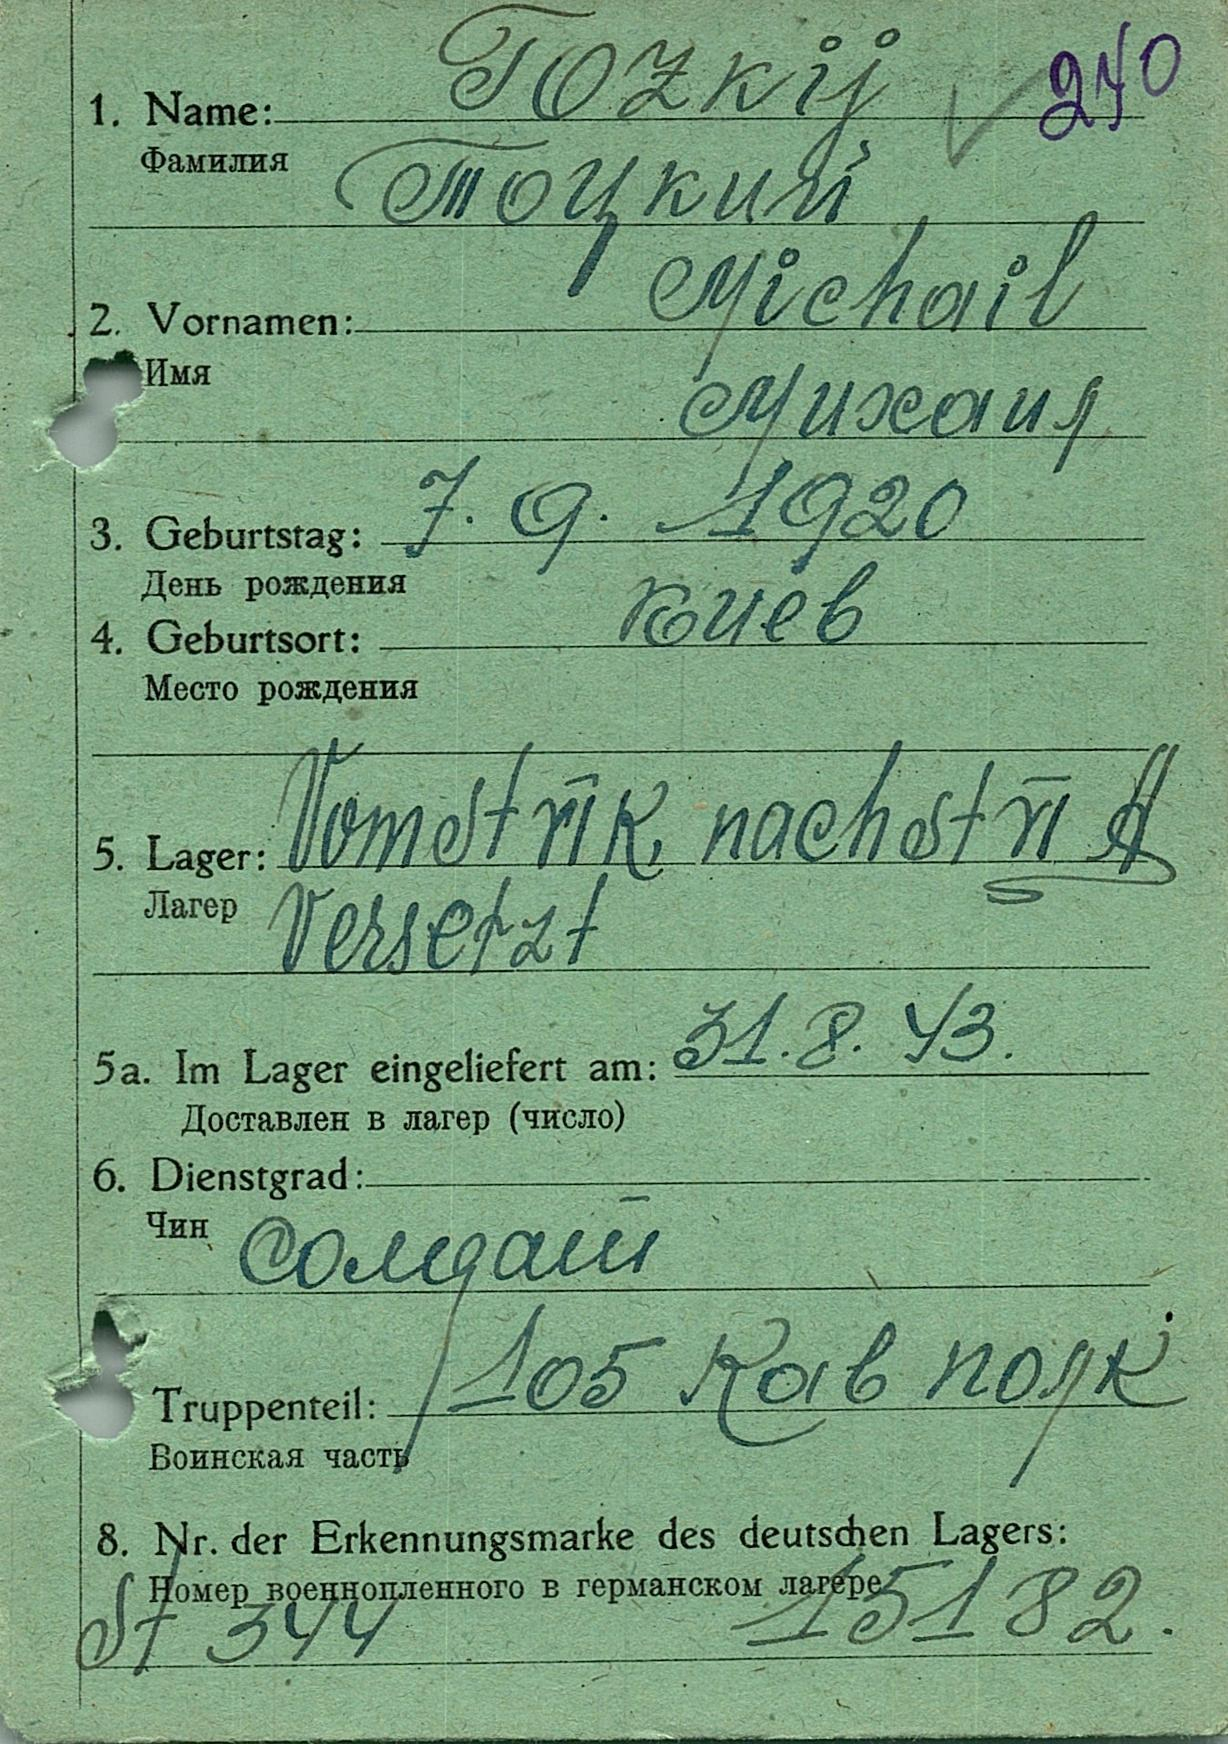 Tozkij 240
1. Name:
Фамилия
Тоцкий
Michail
2. Vornamen:
Имя
Михаил
3. Geburtstag: 7. 9. 1920
День рождения
4. Geburtsort: Киев
Место рождения
5. Lager: Vom St VI K, nach St VI A
Лагер
Versetzt
5a. Im Lager eingeliefert am: 31. 8. 43.
Доставлен в лагер (число)
6. Dienstgrad:
Чин
Солдат
Truppenteil: 105 Кав полк
Воинская часть
8. Nr. der Erkennungsmarke des deutschen Lagers:
Номер военнопленного в германском лагере
St 344 15182.